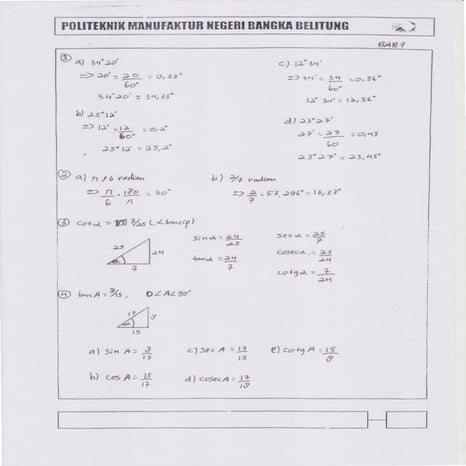 POLITEKNIK MANUFAKTUR NEGERI BANGKA BELITUNG
BAB 7
① a) 34°20'
=> 20' = 20/60° = 0,33°
34°20' = 34,33°
b) 25°12'
=> 12' = 12/60° = 0,2°
25°12' = 25,2°
c) 12°34'
=> 34' = 34/60° = 0,56°
12°34' = 12,56°
d) 23°27'
27' = 27/60 = 0,45
23°27' = 23,45°
② a) π/6 radian
=> π/6 . 180/π = 30°
b) 2/7 radian
=> 2/7 . 57,296° = 16,37°
③ cos α = 7/25 (∠ lancip)
25 24
α
7
sin α = 24/25
tan α = 24/7
sec α = 25/7
cosec α = 25/24
cotg α = 7/24
④ tan A = 8/15, 0∠A∠90°
17 8
α
15
a) sin A = 8/17
b) cos A = 15/17
c) sec A = 17/15
d) cosec A = 17/8
e) cotg A = 15/8